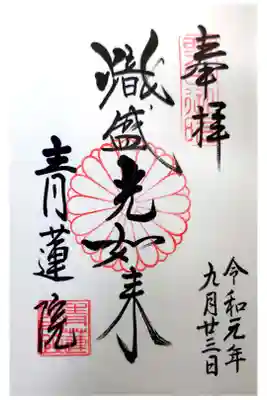 奉拝
熾盛光如来
青蓮院
令和元年
九月廿三日